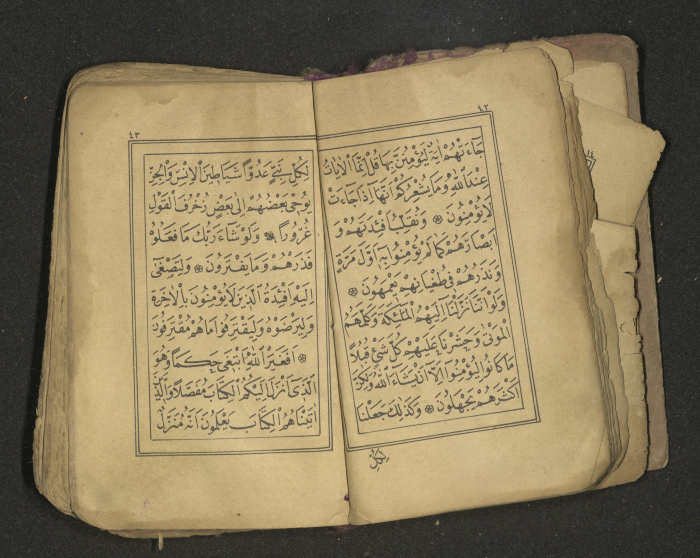 ٤٢
جَاءَتْهُمْ اٰيَةٌ لَيُؤْمِنُنَّ بِهَا قُلْ اِنَّمَا الْاٰيَاتُ
عِنْدَ اللّٰهِ وَمَا يُشْعِرُكُمْ اَنَّهَا اِذَا جَاءَتْ
لَا يُؤْمِنُونَ ۞ وَنُقَلِّبُ اَفْـِٔدَتَهُمْ وَ
اَبْصَارَهُمْ كَمَا لَمْ يُؤْمِنُوا بِهٖ اَوَّلَ مَرَّةٍ
وَنَذَرُهُمْ فِى طُغْيَانِهِمْ يَعْمَهُونَ ۞
وَلَوْ اَنَّنَا نَزَّلْنَا اِلَيْهِمُ الْمَلٰئِكَةَ وَكَلَّمَهُمُ
الْمَوْتٰى وَحَشَرْنَا عَلَيْهِمْ كُلَّ شَىْءٍ قُبُلًا
مَا كَانُوا لِيُؤْمِنُوا اِلَّا اَنْ يَشَاءَ اللّٰهُ وَلٰكِنَّ
اَكْثَرَهُمْ يَجْهَلُونَ ۞ وَكَذٰلِكَ جَعَلْنَا
لِكُلِّ
٤٣
لِكُلِّ نَبِىٍّ عَدُوًّا شَيَاطِينَ الْاِنْسِ وَالْجِنِّ
يُوحِى بَعْضُهُمْ اِلٰى بَعْضٍ زُخْرُفَ الْقَوْلِ
غُرُورًا ۞ وَلَوْ شَاءَ رَبُّكَ مَا فَعَلُوهُ
فَذَرْهُمْ وَمَا يَفْتَرُونَ ۞ وَلِتَصْغٰى
اِلَيْهِ اَفْـِٔدَةُ الَّذِينَ لَا يُؤْمِنُونَ بِالْاٰخِرَةِ
وَلِيَرْضَوْهُ وَلِيَقْتَرِفُوا مَا هُمْ مُقْتَرِفُونَ
۞ اَفَغَيْرَ اللّٰهِ اَبْتَغِى حَكَمًا وَهُوَ
الَّذِى اَنْزَلَ اِلَيْكُمُ الْكِتَابَ مُفَصَّلًا وَالَّذِينَ
اٰتَيْنَاهُمُ الْكِتَابَ يَعْلَمُونَ اَنَّهُ مُنَزَّلٌ